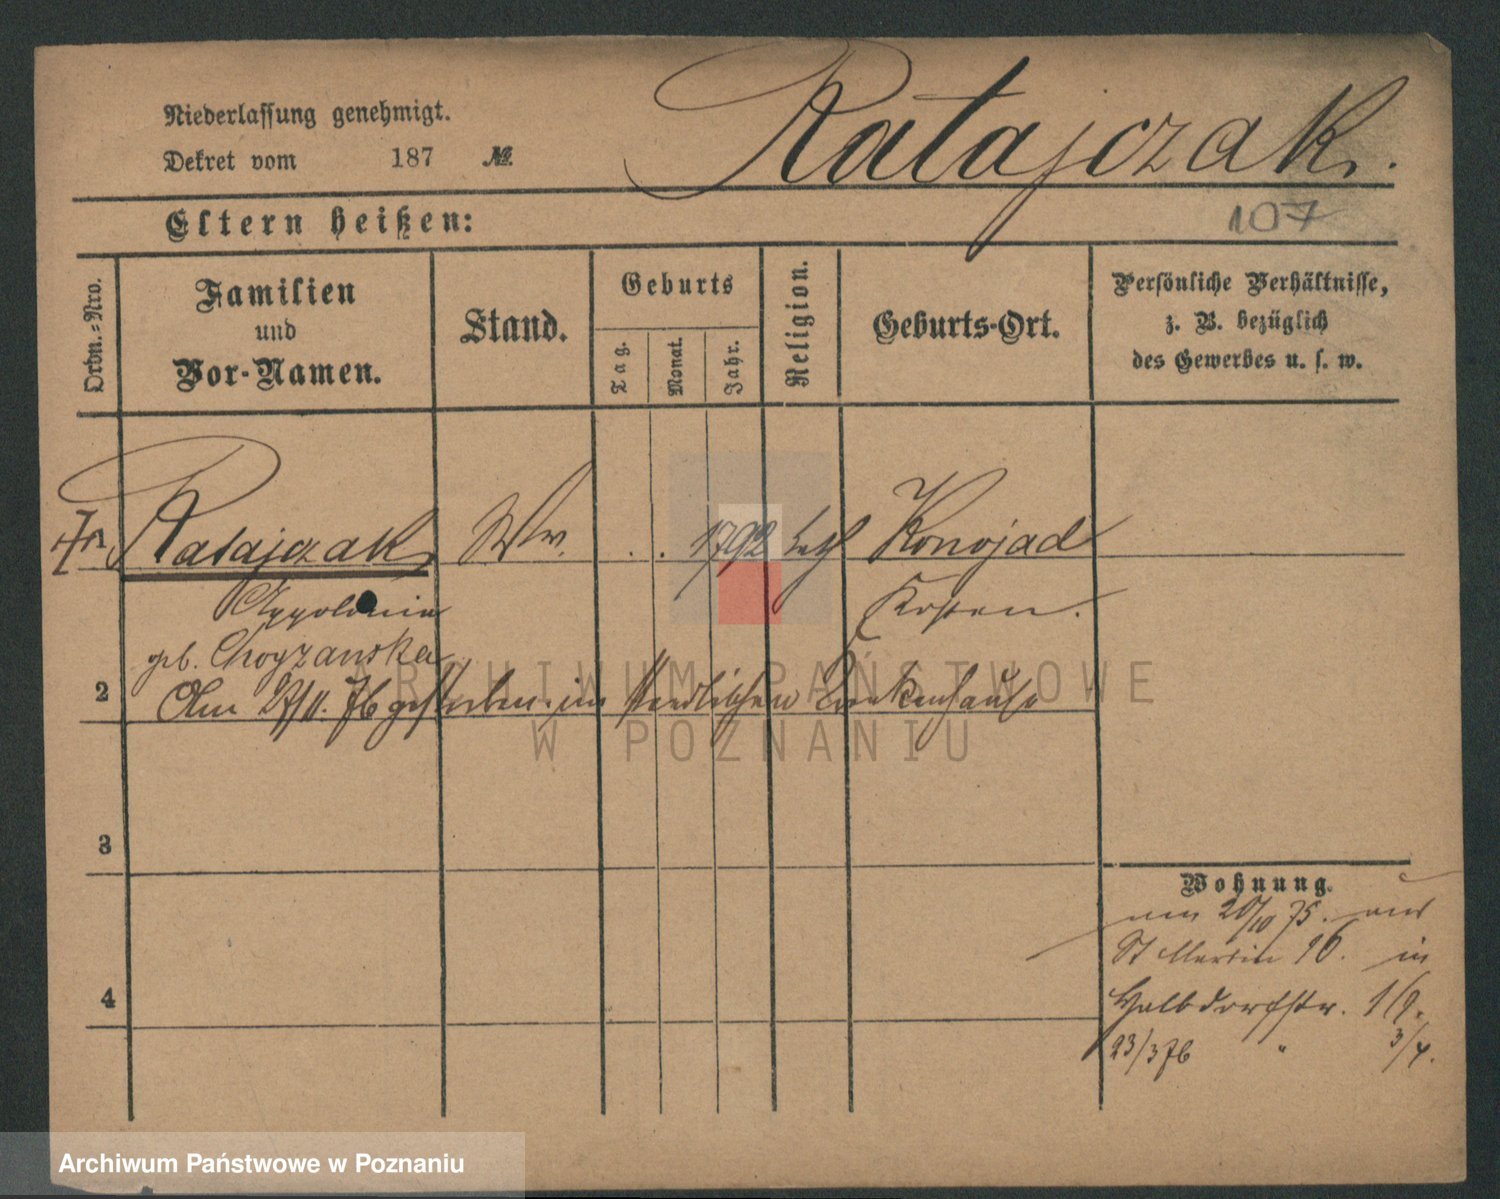 Ratajczak.
Niederlassung genehmigt.
Dekret vom 187 №
Eltern heißen:
107
Ordn.-Nro.
Familien
und
Vor-Namen.
Stand.
Geburts
Tag.
Monat.
Jahr.
Religion.
Geburts-Ort.
Persönliche Verhältnisse,
z. B. bezüglich
des Gewerbes u. s. w.
1 Ratajczak, Ww. . . 1792 kath Konojad
Appolonia Kosten.
geb.
2 Am 27/11. 76 gestorben im städtischen Krankenhause
3
4
Wohnung.
am 20/10 75. aus
St Martin 16. in
Halbdorfstr. 1/9.
23/3 76 " 3/4.
ARCHIWUM PAŃSTWOWE
W POZNANIU
Archiwum Państwowe w Poznaniu